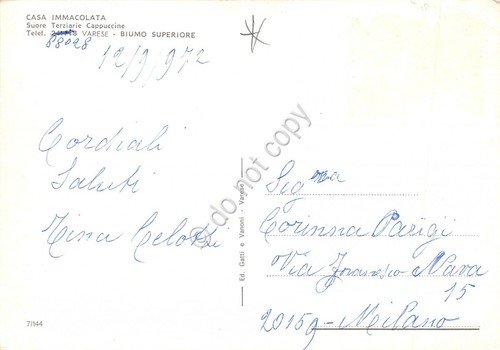 CASA IMMACOLATA
Suore Terziarie Cappuccine
Telef. VARESE - BIUMO SUPERIORE
88028
12/9/972
Cordiali
Saluti
Tina
Ed. Gatti e Vanoni - Varese
Sig.na
Corinna Parigi
Via Francesco Nava
15
20159 - Milano
7/144
do not copy